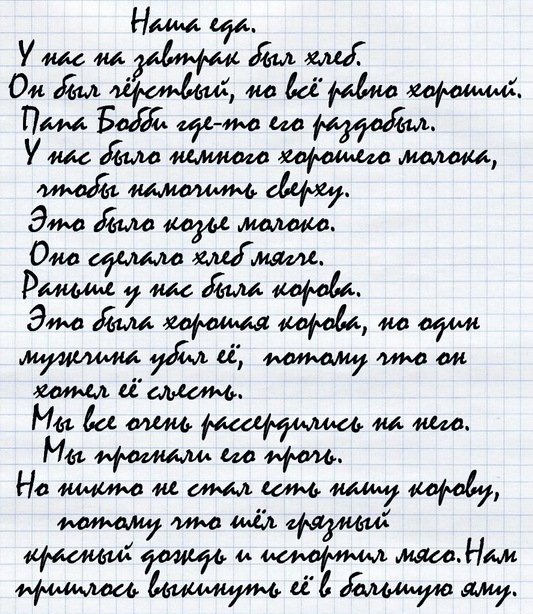 Наша еда.
У нас на завтрак был хлеб.
Он был чёрствый, но всё равно хороший.
Папа Бобби где-то его раздобыл.
У нас было немного хорошего молока,
чтобы намочить сверху.
Это было козье молоко.
Оно сделало хлеб мягче.
Раньше у нас была корова.
Это была хорошая корова, но один
мужчина убил её, потому что он
хотел её съесть.
Мы все очень рассердились на него.
Мы прогнали его прочь.
Но никто не стал есть нашу корову,
потому что шёл грязный
красный дождь и испортил мясо. Нам
пришлось выкинуть её в большую яму.